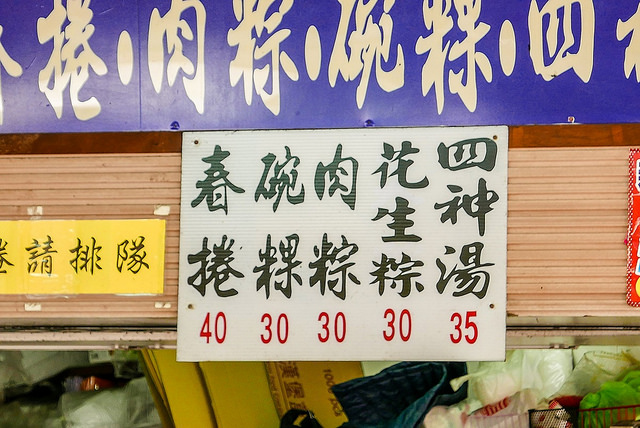 捲·肉粽·碗粿·四
四神湯 35
花生粽 30
肉粽 30
碗粿 30
春捲 40
請排隊